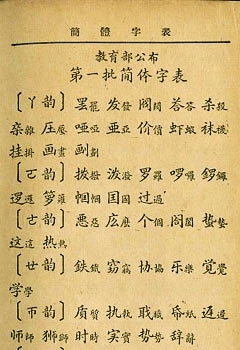 簡體字表
教育部公布
第一批简体字表
〔ㄚ韵〕罢罷 发發 阀閥 荅答 杀殺
杂雜 压壓 哑啞 亚亞 价價 虾蝦 袜襪
挂掛 画畫 劃
〔ㄛ韵〕拨撥 泼潑 罗羅 啰囉 锣鑼
逻邏 箩籮 帼幗 国國 过過
〔ㄜ韵〕恶惡 庅麽 个個 阁閣 蛰蟄
这這 热熱
〔ㄝ韵〕鉄鐵 窃竊 协協 乐樂 觉覺
学學
〔ㄭ韵〕质質 执執 职職 帋紙 迟遲
师師 狮獅 时時 实實 势勢 辞辭